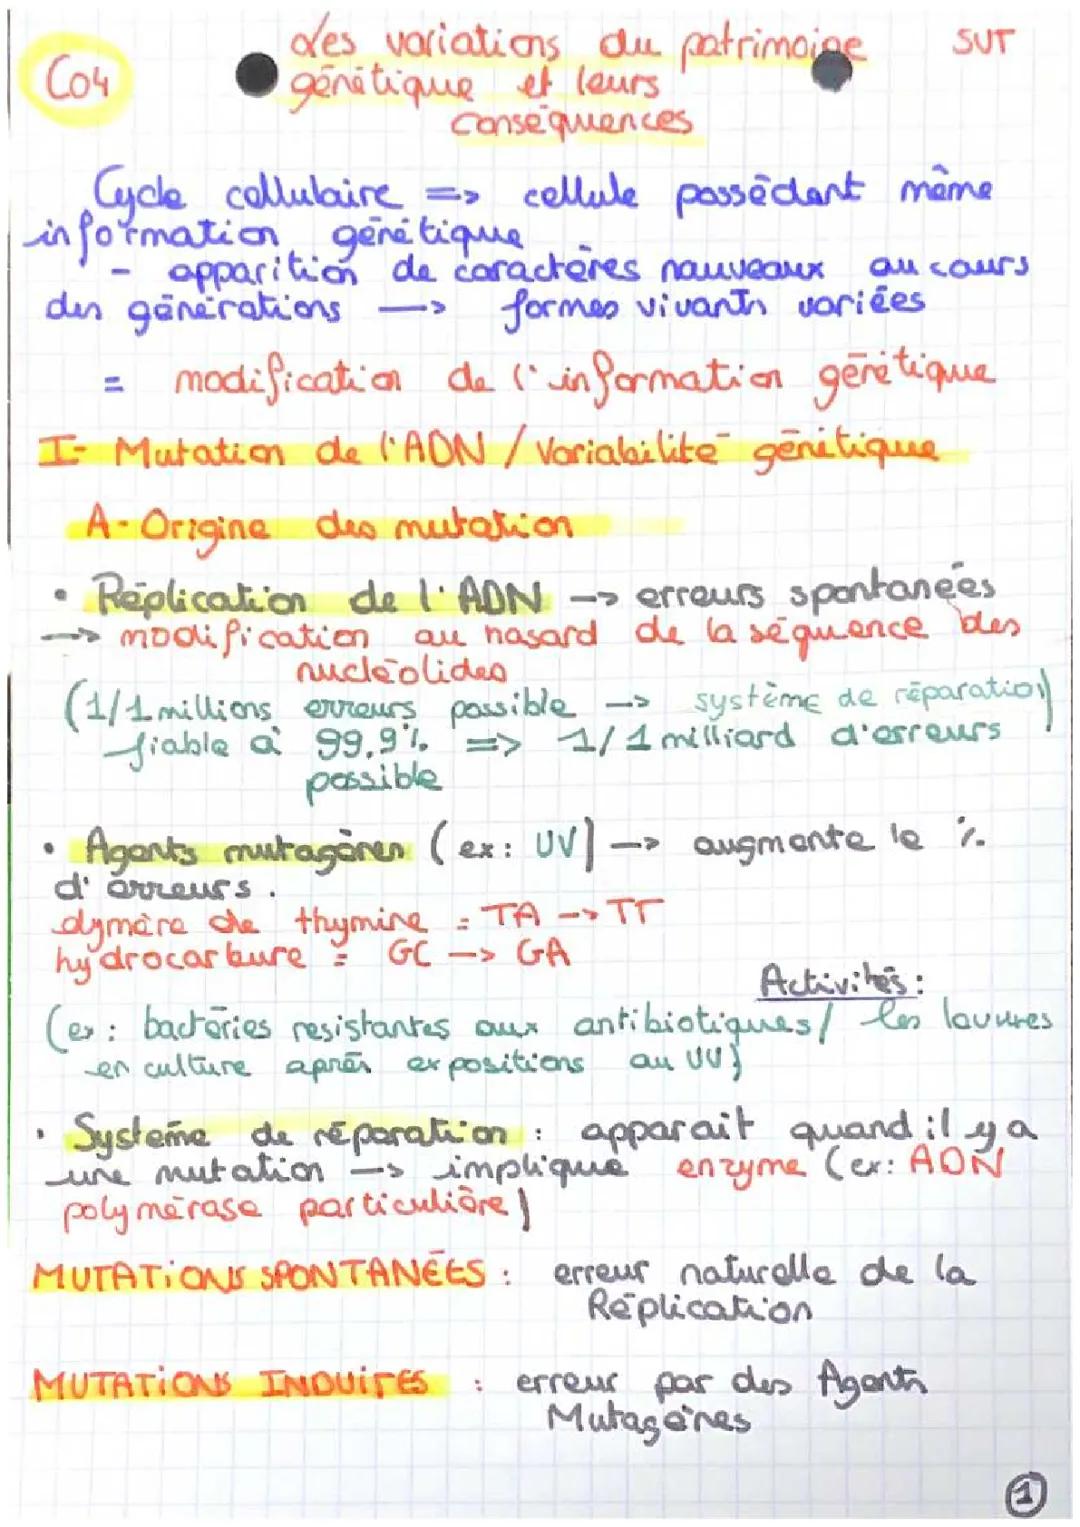 C04
Les variations du patrimoine SVT
génétique et leurs
conséquences
Cycle cellulaire => cellule possédant même
information génétique
- apparition de caractères nouveaux au cours
des générations —> formes vivants variées
= modification de l'information génétique
I- Mutation de l'ADN / Variabilité génétique
A- Origine des mutation
• Réplication de l'ADN —> erreurs spontanées
—> modification au hasard de la séquence des
nucléotides
(1/1 millions erreurs possible —> système de réparation)
fiable à 99,9% => 1/1 milliard d'erreurs
possible
• Agents mutagènes (ex: UV) —> augmente le %
d'erreurs.
dymère de thymine = TA —> TT
hydrocarbure = GC —> GA
Activités :
(ex: bactéries resistantes aux antibiotiques / les levures
en culture après expositions au UV)
• Système de réparation : apparait quand il y a
une mutation —> implique enzyme (ex: ADN
polymérase particulière)
MUTATIONS SPONTANÉES : erreur naturelle de la
Réplication
MUTATIONS INDUITES : erreur par des Agents
Mutagènes
1